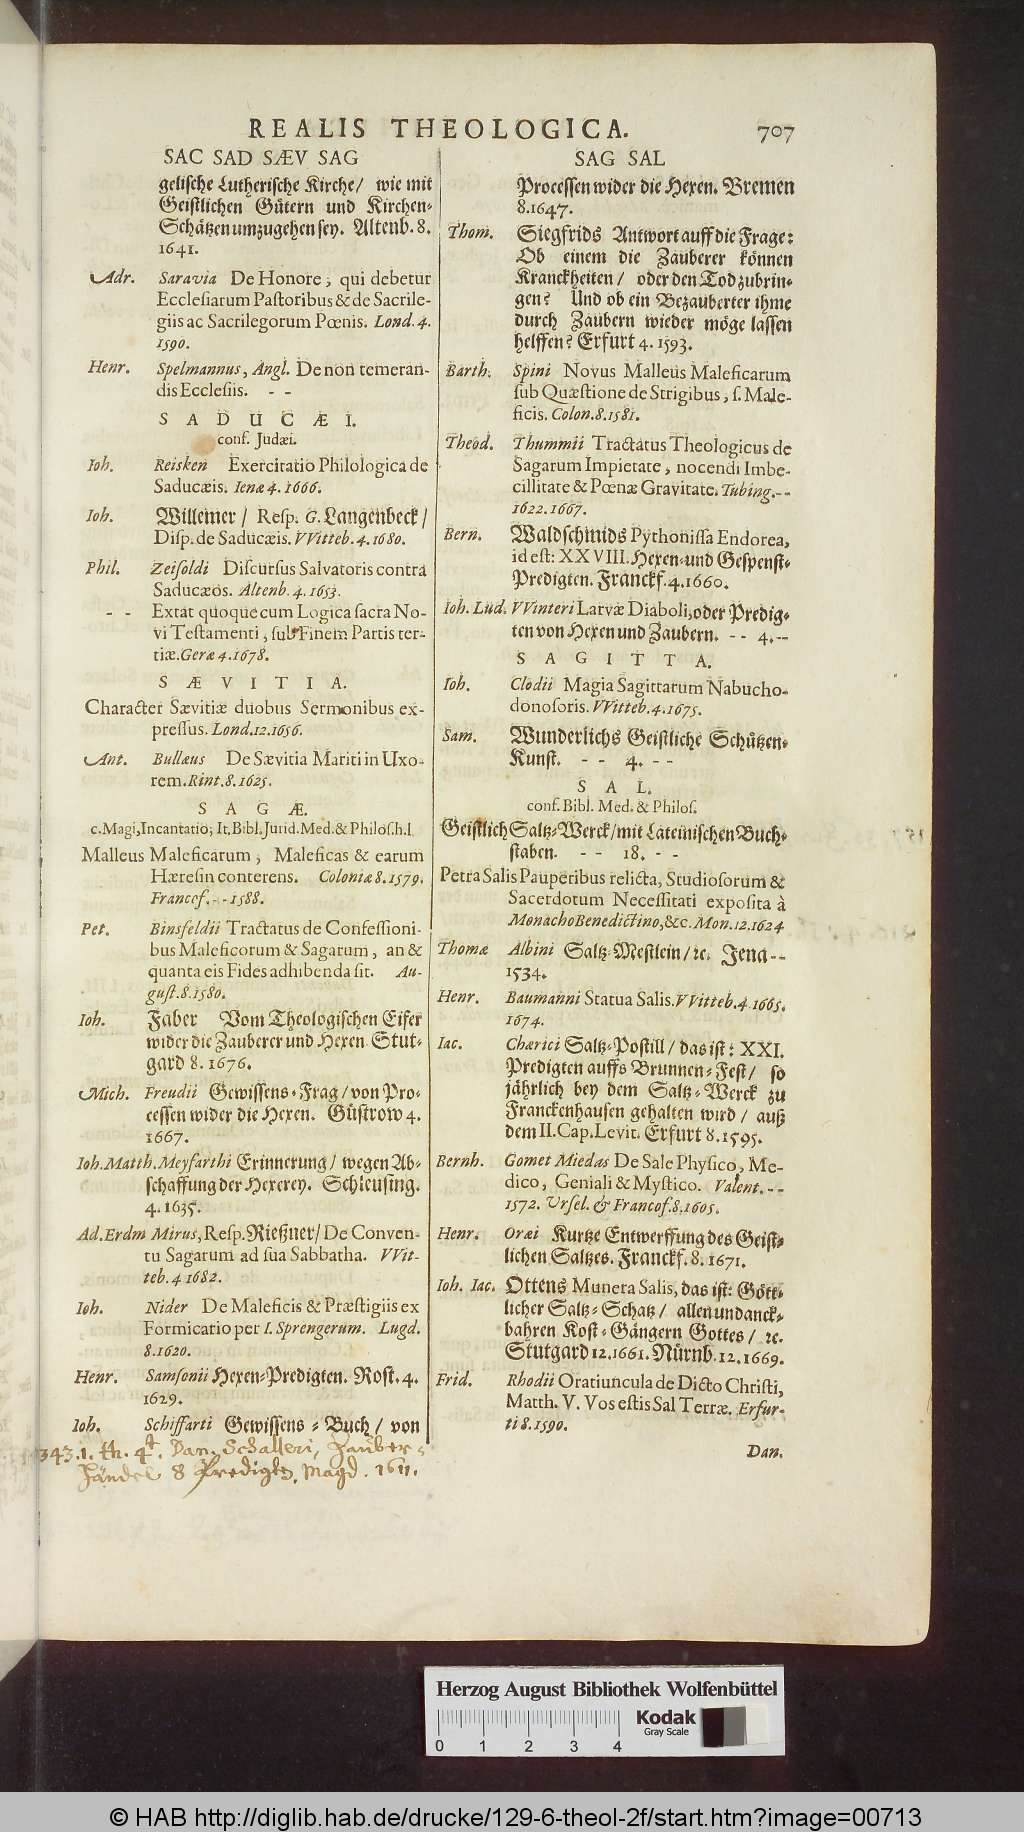 REALIS THEOLOGICA. 707
SAC SAD SÆV SAG
gelische Lutherische Kirche/ wie mit
Geistlichen Gütern und Kirchen-
Schätzen umzugehen sey. Altenb. 8.
1641.
Adr. Saravia De Honore, qui debetur
Ecclesiarum Pastoribus & de Sacrile-
giis ac Sacrilegorum Pœnis. Lond. 4.
1590.
Henr. Spelmannus, Angl. De non temeran-
dis Ecclesiis. - -
SADUCÆI.
conf. Judæi.
Ioh. Reisken Exercitatio Philologica de
Saducæis. Ienæ 4. 1666.
Ioh. Willemer/ Resp. G. Langenbeck/
Disp. de Saducæis. VVitteb. 4. 1680.
Phil. Zeisoldi Discursus Salvatoris contra
Saducæos. Altenb. 4. 1653.
- - Extat quoque cum Logica sacra No-
vi Testamenti, sub Finem Partis ter-
tiæ. Geræ 4. 1678.
SÆVITIA.
Character Sævitiæ duobus Sermonibus ex-
pressus. Lond. 12. 1656.
Ant. Bullæus De Sævitia Mariti in Uxo-
rem. Rint. 8. 1625.
SAGÆ.
c. Magi, Incantatio; It. Bibl. Jurid. Med. & Philos. h. l.
Malleus Maleficarum, Maleficas & earum
Hæresin conterens. Coloniæ 8. 1579.
Francof. - - 1588.
Pet. Binsfeldii Tractatus de Confessioni-
bus Maleficorum & Sagarum, an &
quanta eis Fides adhibenda sit. Au-
gust. 8. 1580.
Ioh. Faber Vom Theologischen Eifer
wider die Zauberer und Hexen Stut-
gard 8. 1676.
Mich. Freudii Gewissens-Frag/ von Pro-
cessen wider die Hexen. Güstrow 4.
1667.
Ioh. Matth. Meyfarthi Erinnerung/ wegen Ab-
schaffung der Hexerey. Schleusing.
4. 1635.
Ad. Erdm Mirus, Resp. Rießner/ De Conven-
tu Sagarum ad sua Sabbatha. VVit-
teb. 4 1682.
Ioh. Nider De Maleficis & Præstigiis ex
Formicario per I. Sprengerum. Lugd.
8. 1620.
Henr. Samsonii Hexen-Predigten. Rost. 4.
1629.
Ioh. Schiffarti Gewissens-Buch/ von
343.1. th. 4t. Dan. Schalleri, Zauber-
Händel 8 Predigtn. Magd. 1611.
SAG SAL
Processen wider die Hexen. Bremen
8. 1647.
Thom. Siegfrids Antwort auff die Frage:
Ob einem die Zauberer können
Kranckheiten/ oder den Tod zubrin-
gen? Und ob ein Bezauberter ihme
durch Zaubern wieder möge lassen
helffen? Erfurt 4. 1593.
Barth. Spini Novus Malleus Maleficarum
sub Quæstione de Strigibus, s. Male-
ficis. Colon. 8. 1581.
Theod. Thummii Tractatus Theologicus de
Sagarum Impietate, nocendi Imbe-
cillitate & Pœnæ Gravitate. Tubing. - -
1622. 1667.
Bern. Waldschmids Pythonissa Endorea,
id est: XXVIII. Hexen- und Gespenst-
Predigten. Franckf. 4. 1660.
Ioh. Lud. VVinteri Larvæ Diaboli, oder Predig-
ten von Hexen und Zaubern. - - 4. - -
SAGITTA.
Ioh. Clodii Magia Sagittarum Nabucho-
donosoris. VVitteb. 4. 1675.
Sam. Wunderlichs Geistliche Schützen-
Kunst. - - 4. - -
SAL.
conf. Bibl. Med. & Philos.
Geistlich Saltz-Werck/ mit Lateinischen Buch-
staben. - - 18. - -
Petra Salis Pauperibus relicta, Studiosorum &
Sacerdotum Necessitati exposita à
Monacho Benedictino, &c. Mon. 12. 1624
Thomæ Albini Saltz-Mestlein/ ꝛc. Jena - -
1534.
Henr. Baumanni Statua Salis. VVitteb. 4. 1665.
1674.
Iac. Chærici Saltz-Postill/ das ist: XXI.
Predigten auffs Brunnen-Fest/ so
jährlich bey dem Saltz-Werck zu
Franckenhausen gehalten wird/ auß
dem II. Cap. Levit. Erfurt 8. 1595.
Bernh. Gomet Miedas De Sale Physico, Me-
dico, Geniali & Mystico. Valent. - -
1572. Ursel. & Francof. 8. 1605.
Henr. Oræi Kurtze Entwerffung des Geist-
lichen Saltzes. Franckf. 8. 1671.
Ioh. Iac. Ottens Munera Salis, das ist: Gött-
licher Saltz-Schatz/ allen undanck-
bahren Kost-Gängern Gottes/ ꝛc.
Stutgard 12. 1661. Nürnb. 12. 1669.
Frid. Rhodii Oratiuncula de Dicto Christi,
Matth. V. Vos estis Sal Terræ. Erfur-
ti 8. 1590.
Dan.
Herzog August Bibliothek Wolfenbüttel
Kodak
Gray Scale
0 1 2 3 4
© HAB http://diglib.hab.de/drucke/129-6-theol-2f/start.htm?image=00713